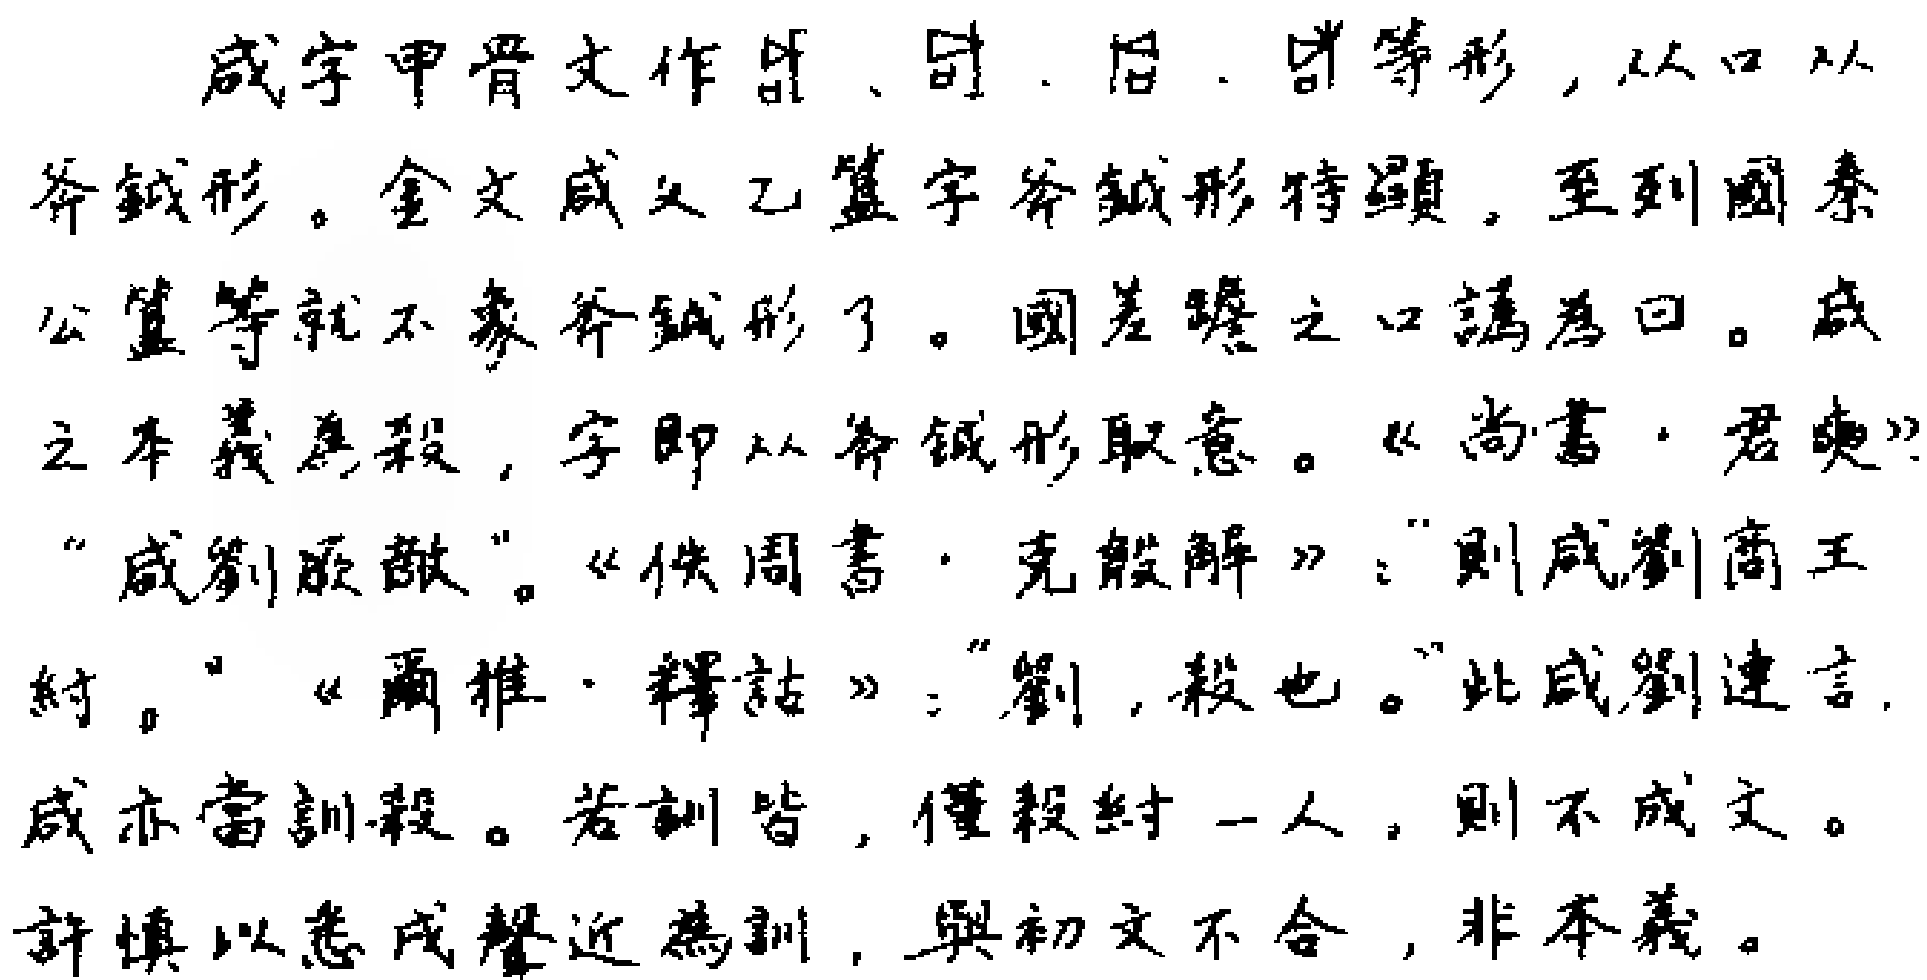 咸字甲骨文作、、、等形，从口从
斧鉞形。金文咸父乙簋字斧鉞形特顯，至到國秦
公簋等就不象斧鉞形了。國差𦉜之口譌為曰。咸
之本義為殺，字即从斧鉞形取意。《尚書·君奭》
“咸劉厥敵”。《佚周書·克殷解》：“則咸劉商王
紂。”《爾雅·釋詁》：“劉，殺也。”此咸劉連言，
咸亦當訓殺。若訓皆，僅殺紂一人，則不成文。
許慎以悉戌聲近為訓，與初文不合，非本義。